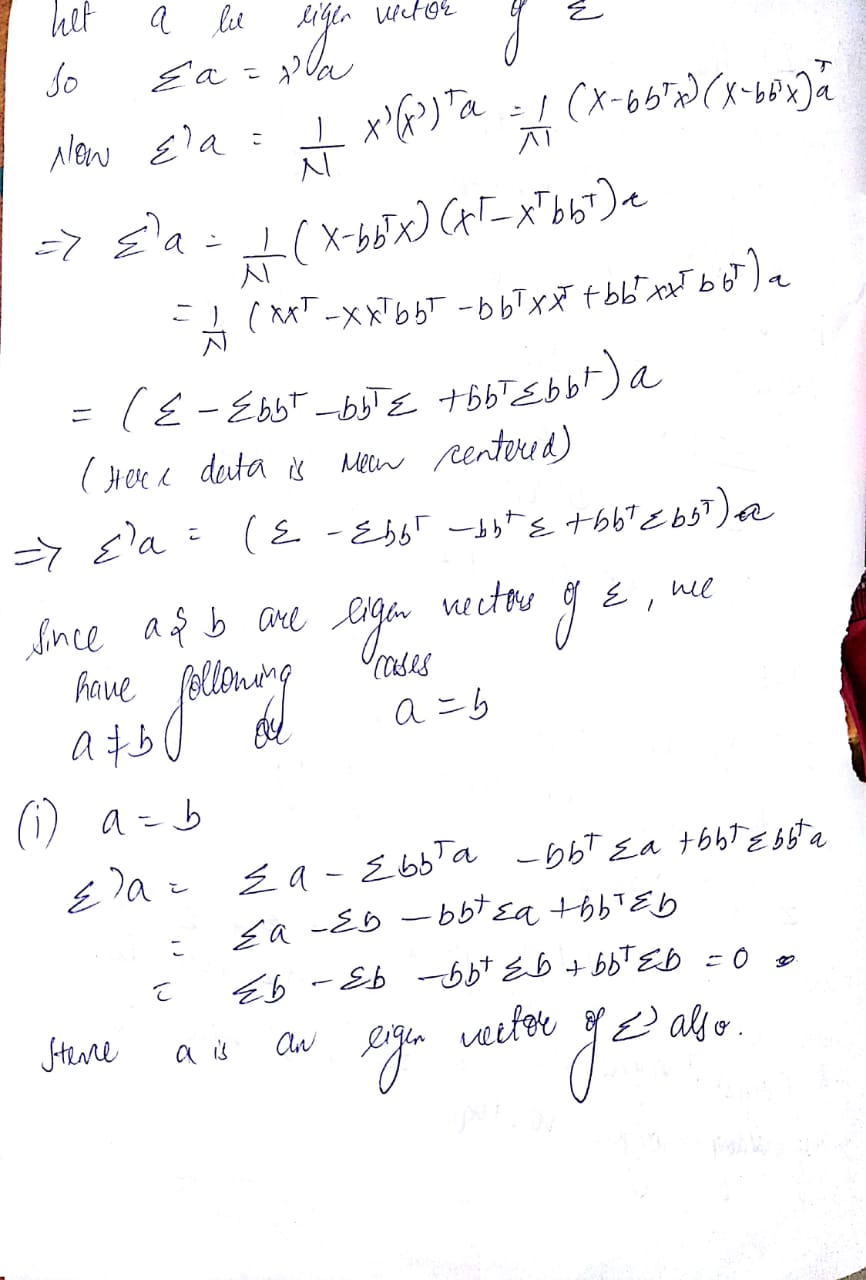 let a be eigen vector of Σ
So Σa = λa
Now Σ'a = 1/N x'(x')ᵀa = 1/N (X-bbᵀx)(X-bbᵀx)ᵀa
=> Σ'a = 1/N (X-bbᵀx)(xᵀ-xᵀbbᵀ)a
= 1/N (xxᵀ - xxᵀbbᵀ - bbᵀxxᵀ + bbᵀxxᵀbbᵀ)a
= (Σ - Σbbᵀ - bbᵀΣ + bbᵀΣbbᵀ)a
(Here data is Mean centered)
=> Σ'a = (Σ - Σbbᵀ - bbᵀΣ + bbᵀΣbbᵀ)a
Since a & b are eigen vectors of Σ, we
have following cases
a ≠ b or a = b
(i) a = b
Σ'a = Σa - Σbbᵀa - bbᵀΣa + bbᵀΣbbᵀa
= Σa - Σb - bbᵀΣa + bbᵀΣb
= Σb - Σb - bbᵀΣb + bbᵀΣb = 0
Hence a is an eigen vector of Σ' also.